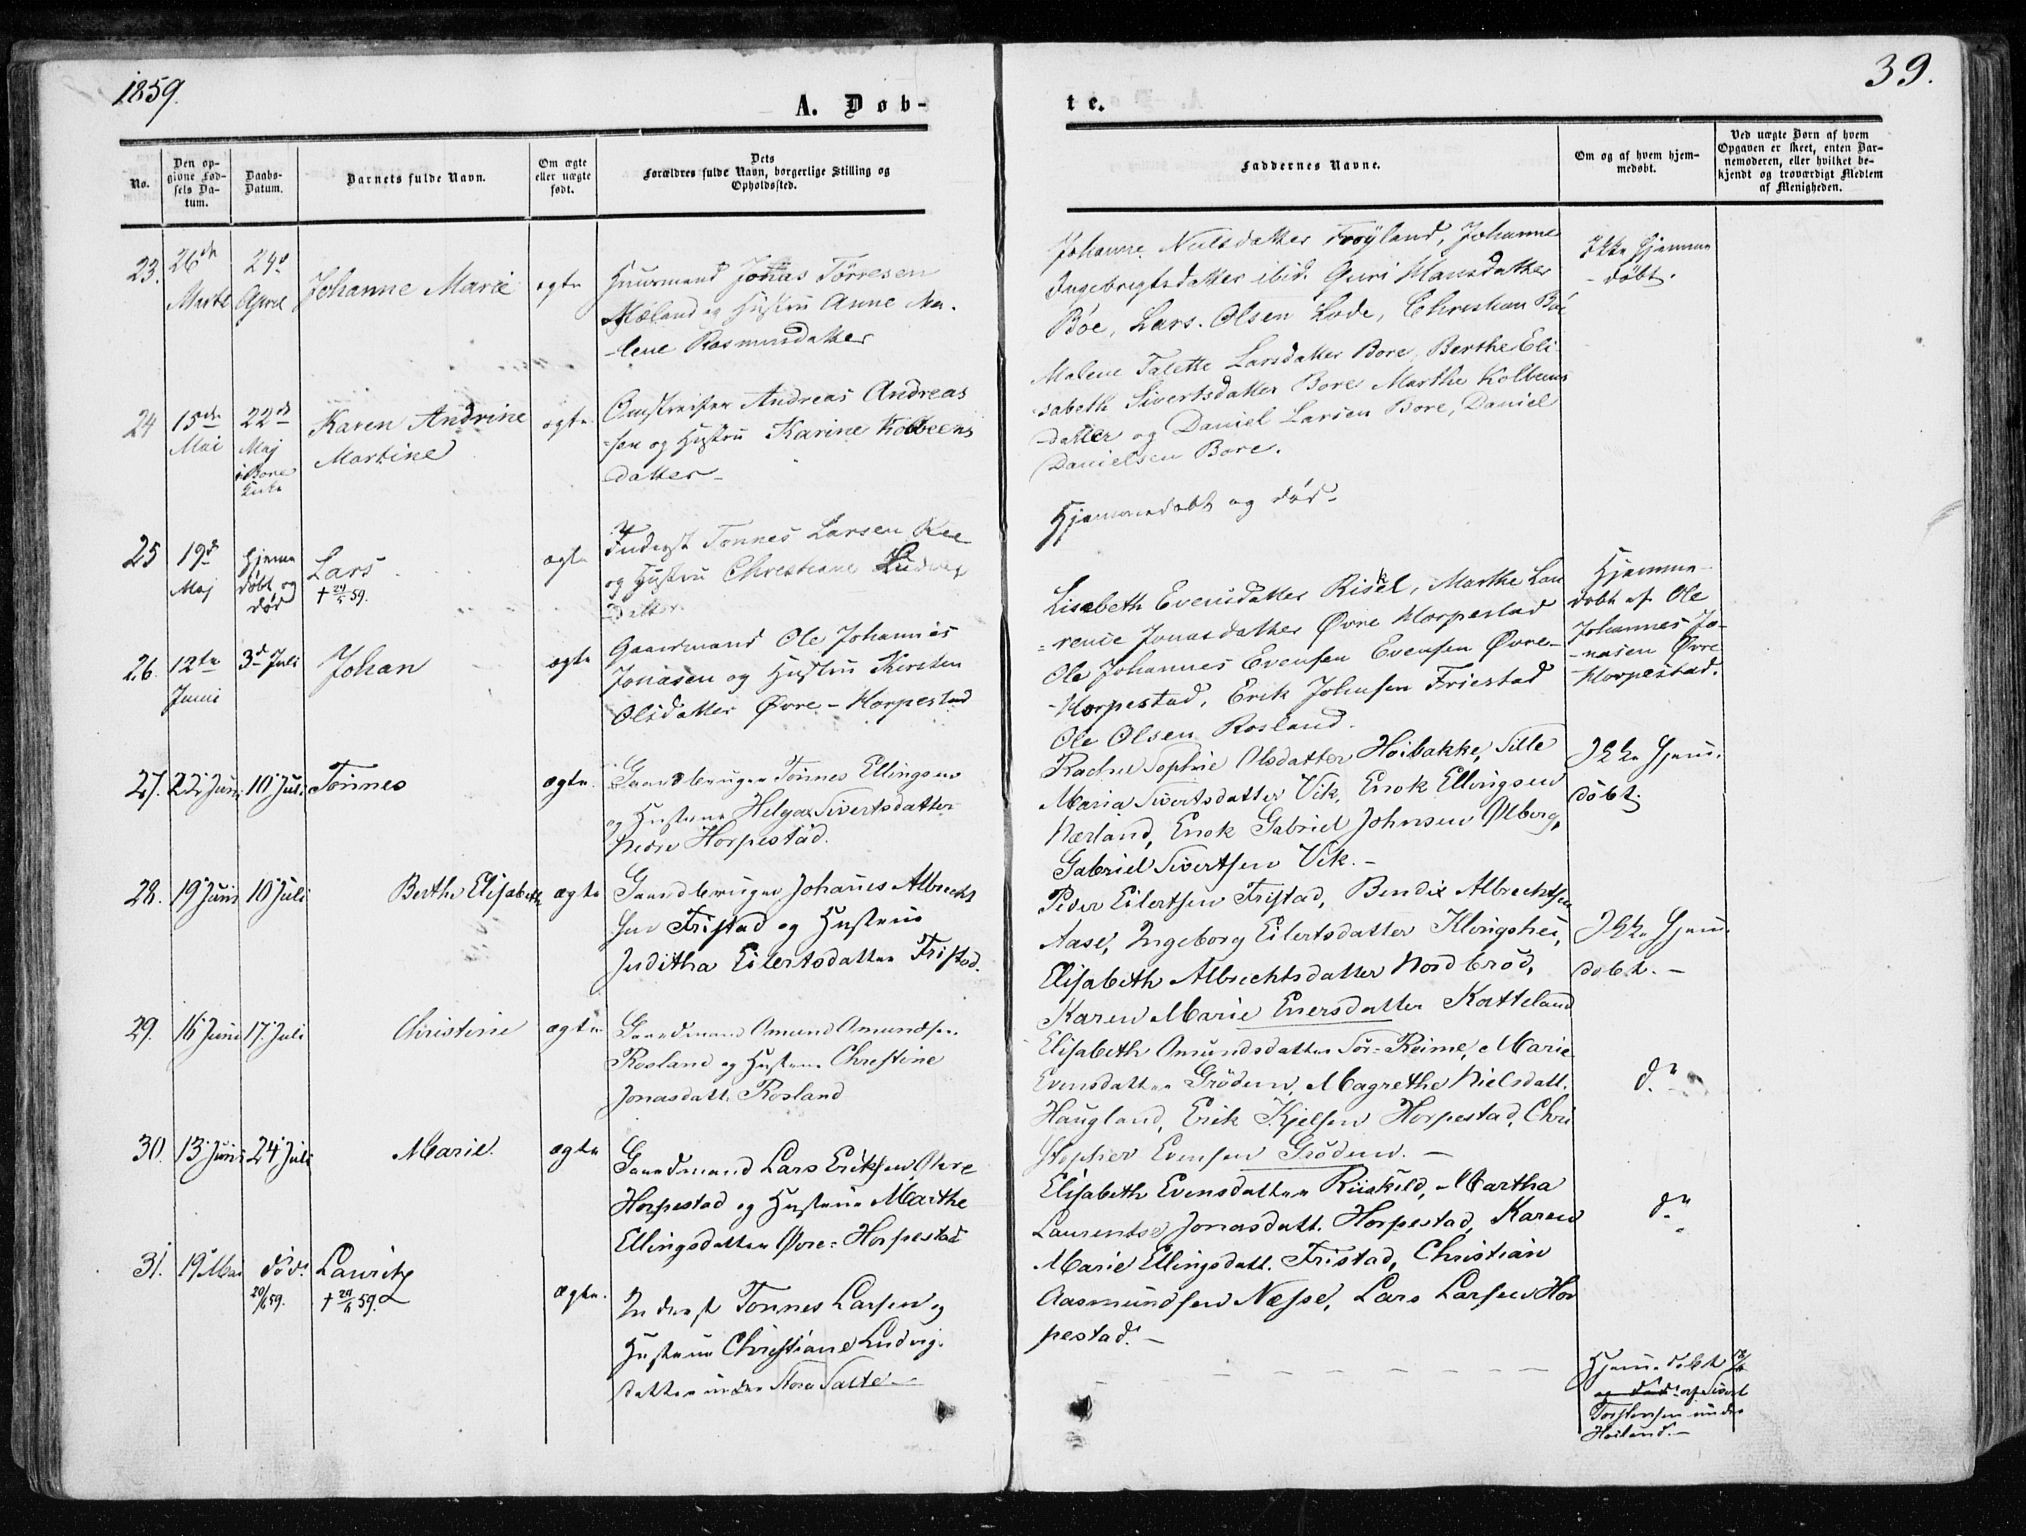 1859.
39.
A. Døb-
te.
No.
Den op-
givne Fød-
sels Da-
tum.
Daabs-
Datum.
Barnets fulde Navn.
Om ægte
eller uægte
født.
Dets
Forældres fulde Navn, borgerlige Stilling og
Opholdssted.
Faddernes Navne.
Om og af hvem hjem-
medøbt.
Ved uægte Børn af hvem
Opgaven er skeet, enten Bar-
nemoderen, eller hvilket be-
kjendt og troværdigt Medlem
af Menigheden.
23.
26de
Marts
24d
April
Johanne Marie
ægte
Huusmand Jonas Törresen
Mæland og Hustru Anne Ma-
-lene Rasmusdatter
Johanne Neelsdatter Fröyland, Johanne
Ingebrigtsdatter ibid. Guri Hansdatter
Böe, Lars Olsen Lode, Christian Böe
Ikke hjemme
-döbt.
24
15de
Mai
22d
Maj
i Bore
Kirke
Karen Andrine
Martine
ægte
Andreas Andreas
-sen og Hustru Karine Kolbeens
datter-
Malene Talette Larsdatter Bore, Berthe Eli
-sabeth Sivertsdatter Bore Marthe Kolbeens
-datter og Daniel Larsen Bore, Daniel
Danielsen Bore.
25
19d
Maj
hjemme
döbt og
död
Lars
† 59.
ægte
Inderst Tönnes Larsen
og Hustru Christiane Ludvigs
datter
Hjemmedöbt og död-
26.
12te
Junii
3d Juli
Johan
ægte
Gaardmand Ole Johannes
Jonasen og Hustru Kirsten
Olsdatter Øvre-Horpestad
Lisabeth Evensdatter Risk, Marthe Lau
=rense Jonasdatter Øvre Horpestad
Ole Johannes Evensen Evensen Øvre-
-Horpestad, Erik Johnsen Friestad
Ole Olsen Rosland.
Hjemme-
döbt af Ole
Johannes Jo-
-nasen Øvre
Horpestad.
27.
22' Juni
10' Juli
Tönnes
ægte.
Gaardbruger Tönnes Ellingsen
og Hustrue Helga Sivertsdatter
Nedre Horpestad.
Rachel Sophie Olsdatter Höibakke, Sille
Maria Sivertsdatter Vik, Enok Ellingsen
Nærland, Enok Gabriel Johnsen Ølberg,
Gabriel Sivertsen Vik.-
Ikke Hjem-
döbt.
28.
19' Juni
10' Juli
Berthe Elisabeth
ægte
Gaardbruger Johanes Albrecht
sen Fristad og Hustrue
Juditha Eilertsdatter Fristad.
Peder Eilertsen Fristad, Bendix Albrechtsen
Aase, Ingeborg Eilertsdatter Klingshei,
Elisabeth Albrechtsdatter Nordbröd,
Karen Marie Enersdatter Katteland
Ikke Hjem-
döbt.-
29.
16' Juni
17' Juli
Christine
ægte
Gaardmand Omund Omundsen
Rosland og Hustrue Christine
Jonasdatt. Rosland
Elisabeth Omundsdatter Sör-Reime, Marie
Evensdatter Gröden, Magrethe Nielsdatt.
Haugland, Erik Kjelsen Horpestad, Chri
stopher Evensen Gröden.-
d.º
30.
13' Juni
24' Juli
Marie.
ægte
Gaardmand Lars Eriksen Øvre
Horpestad og Hustrue Marthe
Ellingsdatter Øvre-Horpestad
Elisabeth Evensdatter Riiskild, Martha
Laurentse Jonasdatt. Horpestad, Karen
Marie Ellingsdatt. Fristad, Christian
Aasmundsen Næsse, Lars Larsen Hor
pestad.-
d.º
31.
19' Mai
död.
20/6 59.
Lauritz
† 20/6 59.
ægte.
Inderst Tönnes Larsen og
Hustrue Christiane Ludvigs
datter under Store Salte-
Hjemdöbt
og död. af Sivert
Torstensen under
Höiland.-